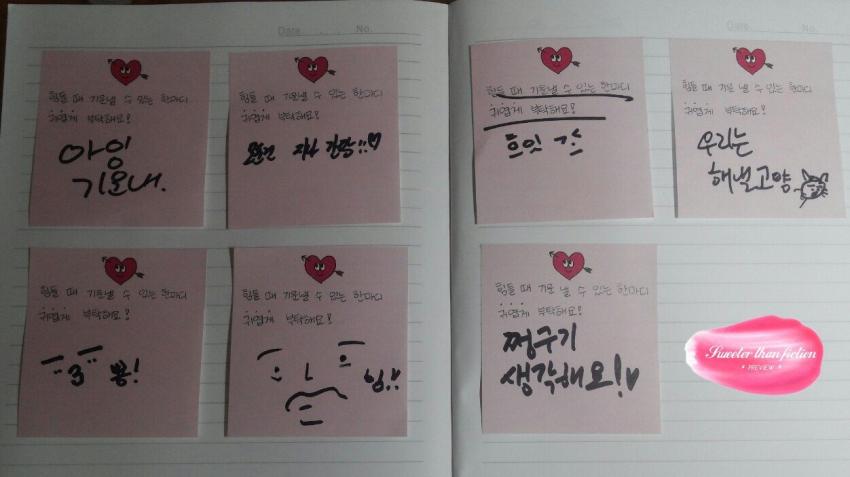 Date . . . No.
힘들 때 기운낼 수 있는 한마디
귀엽게 부탁해요!
아잉
기운내.
힘들 때 기운낼 수 있는 한마디
귀엽게 부탁해요!
힘들 때 기운낼 수 있는 한마디
귀엽게 부탁해요!
뿅!
힘들 때 기운낼 수 있는 한마디
귀엽게 부탁해요!
힘!!
Date . . . No.
힘들 때 기운낼 수 있는 한마디
귀엽게 부탁해요!
흐잇
힘들 때 기운낼 수 있는 한마디
귀엽게 부탁해요!
우리는
해낼고양
힘들 때 기운낼 수 있는 한마디
귀엽게 부탁해요!
쩡구기
생각해요!♥
Sweeter than fiction
• PREVIEW •